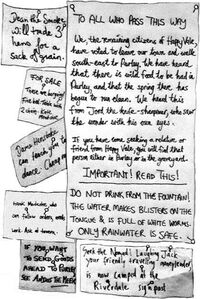 Dean the Smoker,
will trade 3
hens for a
sack of grain.
FOR SALE
TO ALL WHO PASS THIS WAY
We, the remaining citizens of Happy Vale,
have voted to leave our town and walk
south-east to Purley. We have heard
that there is wild food to be had in
Purley, and that the spring there has
begun to run clean. We heard this
from Jord the knife-sharpener, who saw
the wonder with his own eyes.
If you have been seeking a relative or
friend from Happy Vale, you will find that
person either in Purley or in the graveyard.
IMPORTANT! READ THIS!
DO NOT DRINK FROM THE FOUNTAIN!
THE WATER MAKES BLISTERS ON THE
TONGUE & IS FULL OF WHITE WORMS.
ONLY RAINWATER IS SAFE.
can teach you to
dance.
can follow orders, needs
work. Ask at
IF YOU WANT
TO SEND GOODS
AHEAD TO PURLEY
SEE THE
Seek the Nomad! Laughing Jack
your friendly travelling moneylender,
is now camped at the
Riverdale signpost